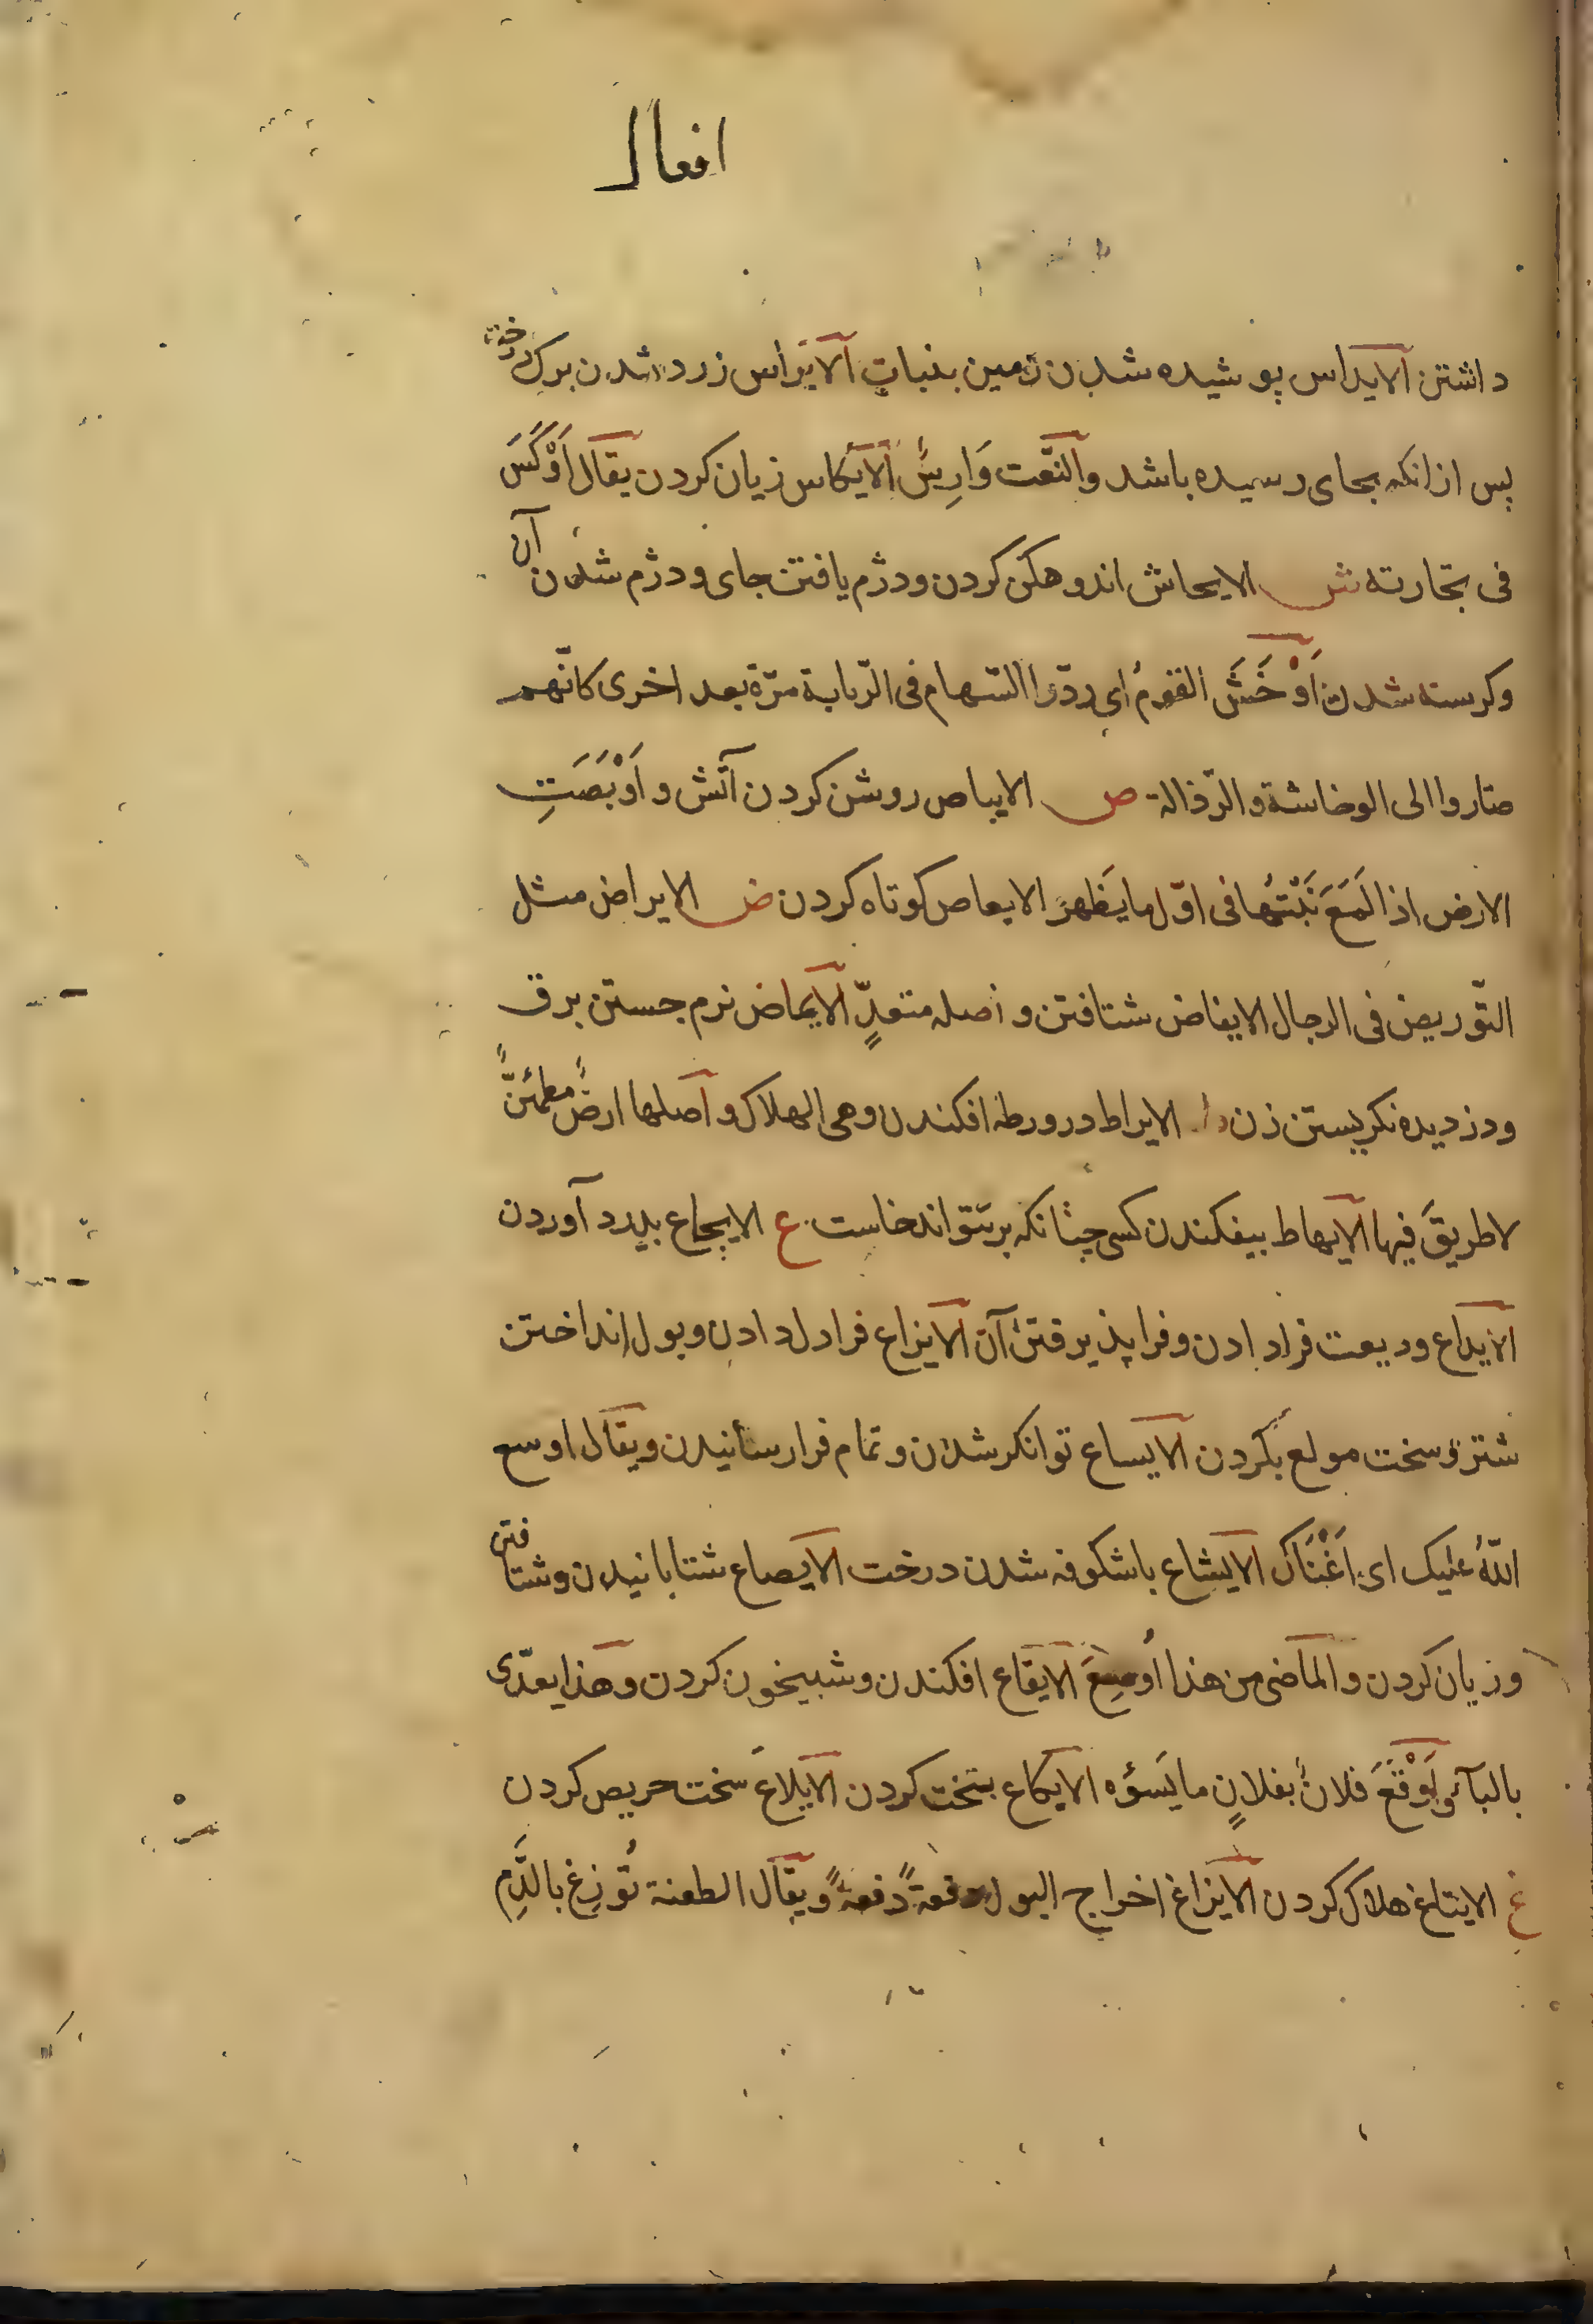 افعال
داشتن الایداس پوشیده شدن زمین بنبات الایراس زرد شدن برک درخت
پس ازانکه بجای رسیده باشد والنّعت وَارِسٌ الایکاس زیان کردن یقال اَوْکَسَ
فی تجارته ش الایحاش اندوهکن کردن ودژم یافتن جای ودژم شدن آن
وکرسنه شدن اَوْخَشَ القومُ ای ردّوا السّهام فی الرّبابة مرّة بعد اخری کانّهم
صاروا الی الوخاشة والرّذالة ص الایباص روشن کردن آتش و اَوْبَصَتِ
الارض اذا لَمَعَ نَبْتُها فی اوّل ما یَظهرُ الایعاص کوتاه کردن ض الایراض مثل
التّوریض فی الرجال الایفاض شتافتن و اصله متعدٍّ الایماض نرم جستن برق
ودزدیده نکریستن زن ط الایراط در ورطه افکندن وهی الهلاک و اصلها ارضٌ مطمئنّةٌ
لا طریقَ فیها الایهاط بیفکندن کسی چنانکه برنتواند خاست ع الایجاع بدرد آوردن
الایداع ودیعت فرا دادن وفرا پذیرفتن آن الایزاع فرا دل دادن وبول انداختن
شتر و سخت مولع بکردن الایساع توانکر شدن و تمام فرا رسانیدن ویقال اوسع
اللّهُ علیک ای اَغْنَاکَ الایشاع باشکوفه شدن درخت الایصاع شتابانیدن و شتافتن
وزیان کردن والماضی من هذا اُوضِعَ الایقاع افکندن و شبیخون کردن وهذا یعدّی
بالبآء واَوْقَعَ فلانٌ بفلانٍ ما یَسؤه الایکاع سخت کردن الایلاع سخت حریص کردن
غ الایتاغ هلاک کردن الایزاغ اخراج البول دفعةً دفعةً ویقال الطعنة تُوزِغ بالدَّمِ